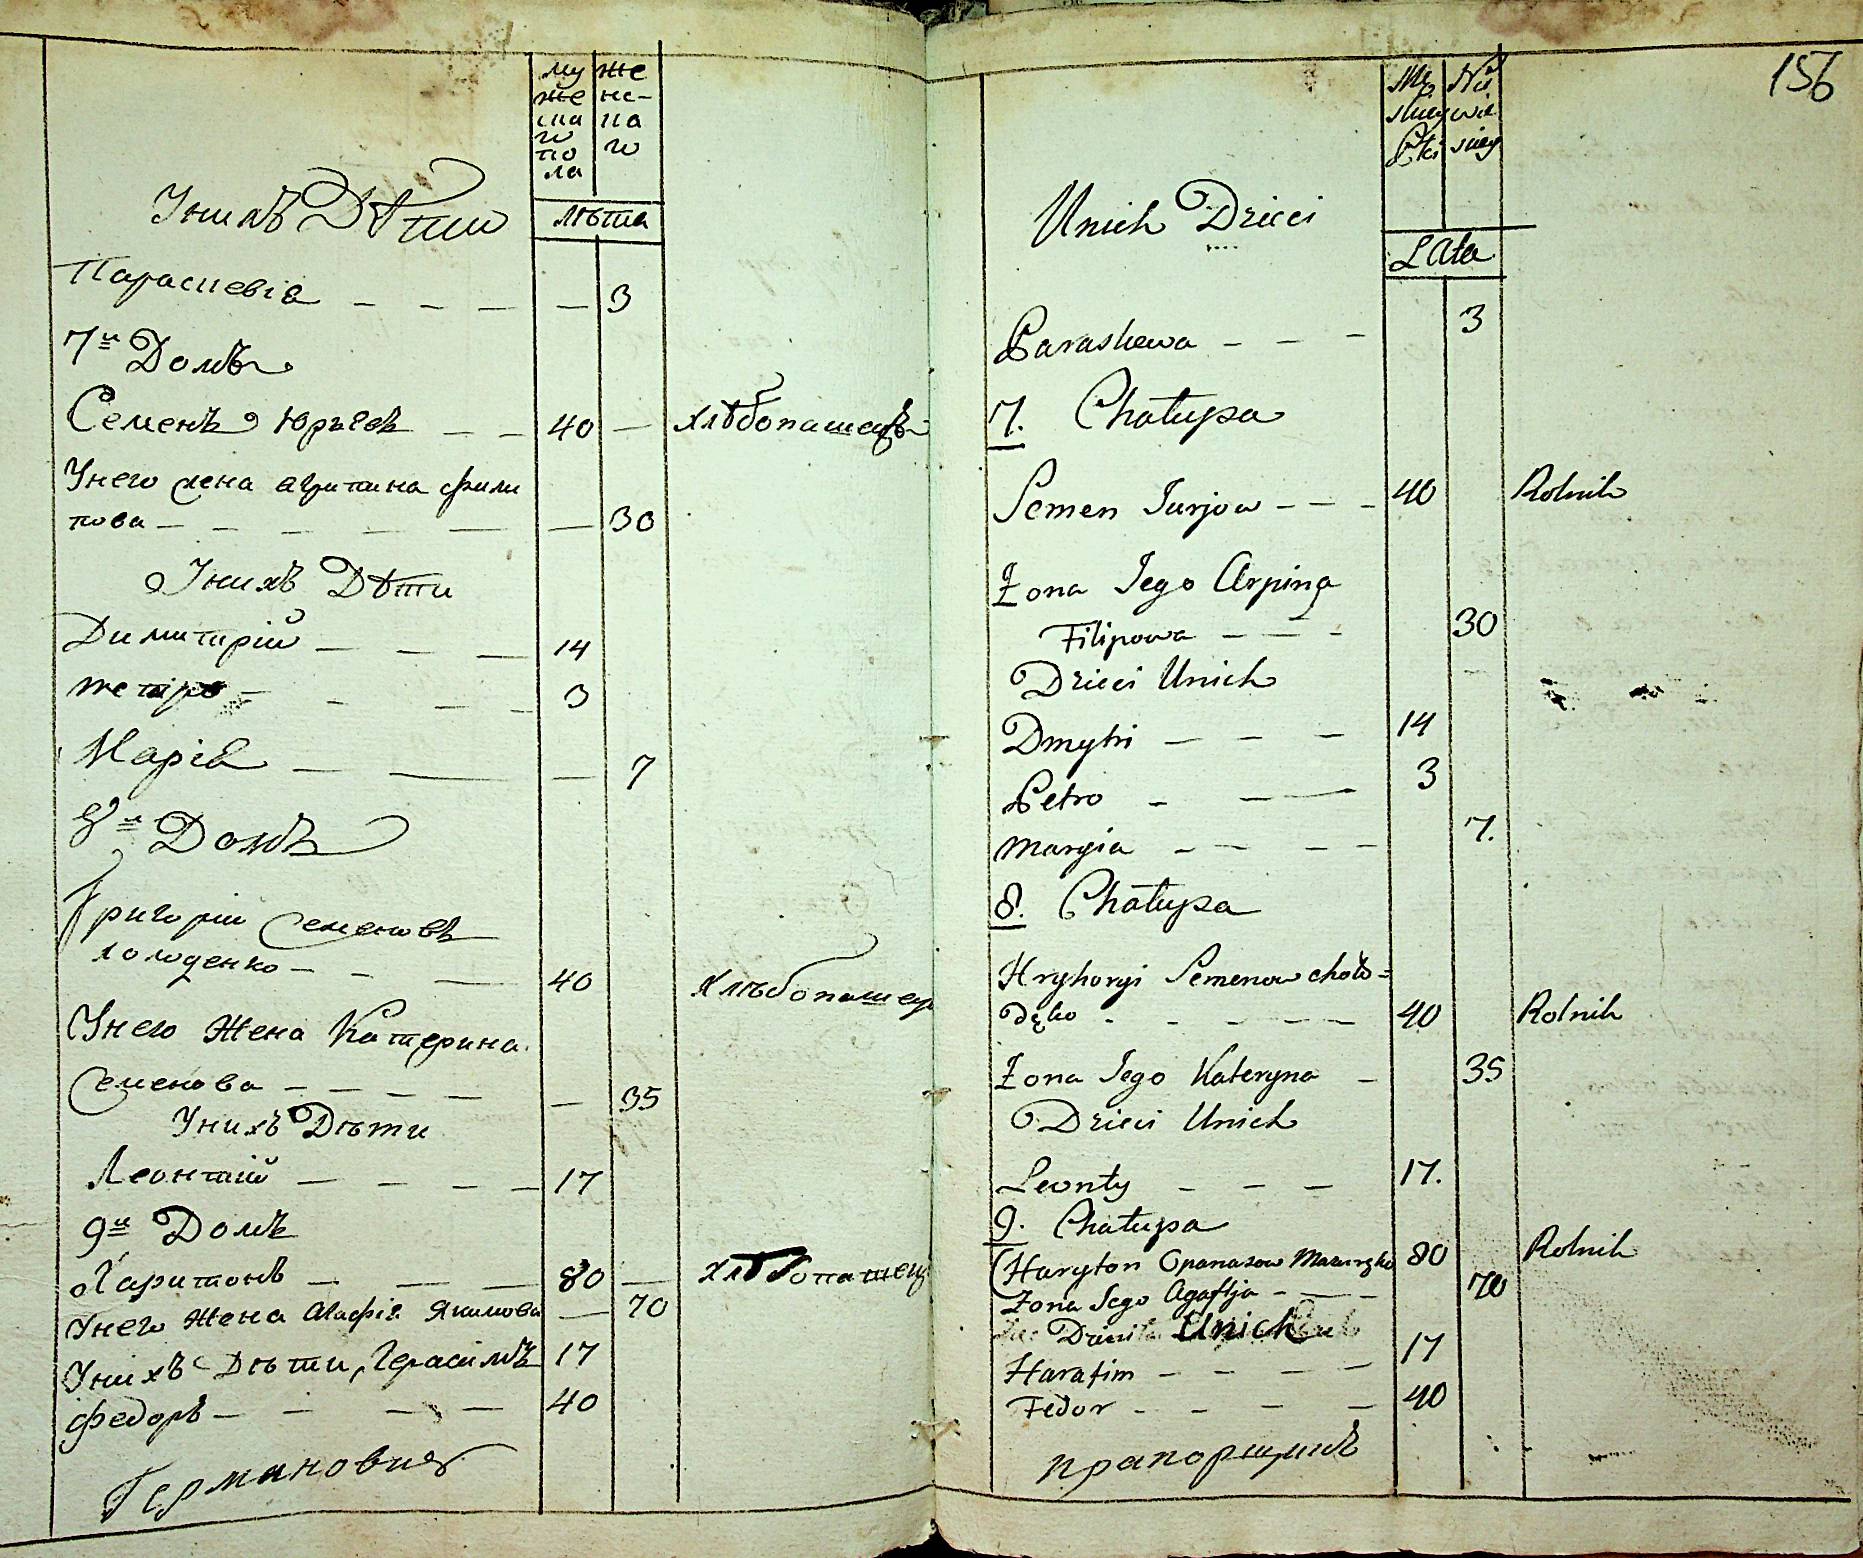 му же
же нс-
ска ка
го го
по
ла
Унихъ Дѣти
лѣта
Параскевіа — — — — — 3
7й Домъ
Семенъ Юрьевъ — — 40 — хлѣбопашецъ
Унего жена агритина фили
пова — — — — — — 30
Унихъ Дѣти
Димитрій — — — 14
петро — — — — 3
Маріа — — — 7
8й Домъ
Григорій Семеновъ
холоденко — — — 40 Хлѣбопашец
Унего Жена Катерина
Семенова — — — — — 35
Унихъ Дѣти
Леонтій — — — — 17
9й Домъ
Харитонъ — — — 80 — хлѣбопашец
Унего Жена Агафіа Якимова — 70
Унихъ Дѣти, Герасимъ 17
федоръ — — — — 40
Германовичъ
156
Unich Dzieci
Lata
Paraskewa — — — 3
7. Chałupa
Semen Jurjow — — — 40 Rolnik
Żona Jego Arpina
Filipowa — — — 30
Dzieci Unich
Dmytri — — — 14
Petro — — 3
Maryia — — — — 7.
8. Chałupa
Hryhoryi Semenow choło=
dęko — — — — — 40 Rolnik
Żona Jego Kateryna — 35
Dzieci Unich
Leonty — — — 17.
9. Chałupa
Haryton Opanasow Mazurzko 80 Rolnik
Żona Jego Agafija — — — 70
Dzieci Unich
Harasim — — — — 17
Fedor — — — — 40
прапорщикъ